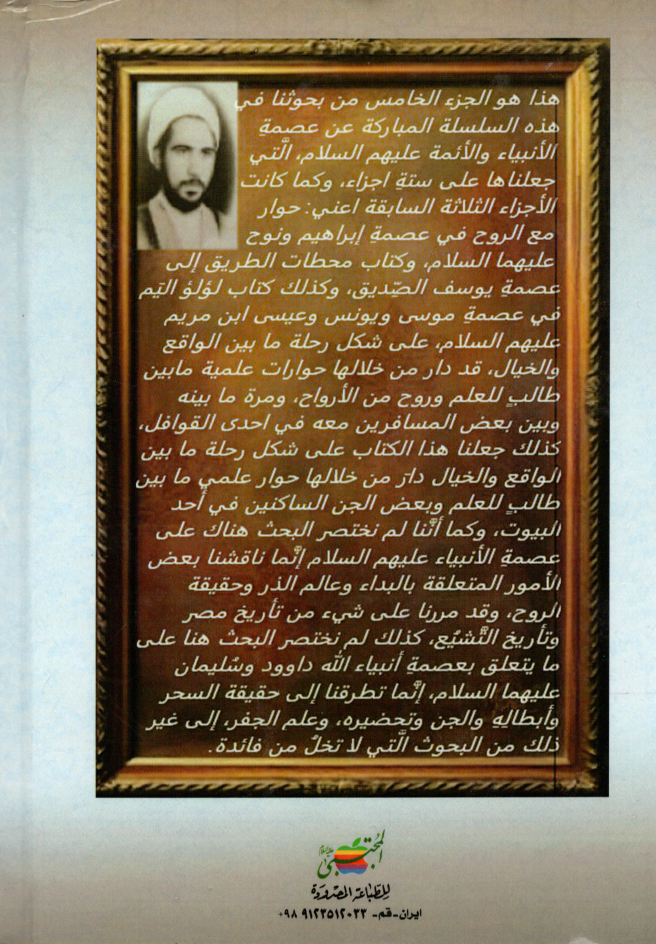 هذا هو الجزء الخامس من بحوثنا في
هذه السلسلة المباركة عن عصمةِ
الأنبياء والأئمة عليهم السلام، الَّتي
جعلناها على ستةِ اجزاء، وكما كانت
الأجزاء الثلاثة السابقة اعني: حوار
مع الروح في عصمةِ إبراهيم ونوح
عليهما السلام، وكتاب محطات الطريق إلى
عصمةِ يوسف الصّديق، وكذلك كتاب لؤلؤ اليَم
في عصمةِ موسى ويونس وعيسى ابن مريم
عليهم السلام، على شكل رحلة ما بين الواقع
والخيال، قد دار من خلالها حوارات علمية مابين
طالبٍ للعلم وروح من الأرواح، ومرة ما بينه
وبين بعض المسافرين معه في احدى القوافل،
كذلك جعلنا هذا الكتاب على شكل رحلة ما بين
الواقع والخيال دارَ من خلالها حوار علمي ما بين
طالبٍ للعلم وبعض الجن الساكنين في أحد
البيوت، وكما أنَّنا لم نختصر البحث هناك على
عصمةِ الأنبياء عليهم السلام إنَّما ناقشنا بعض
الأمور المتعلقة بالبداء وعالم الذر وحقيقة
الروح، وقد مررنا على شيء من تأريخ مصر
وتأريخ التَّشيّع، كذلك لم نختصر البحث هنا على
ما يتعلق بعصمةِ أنبياء الله داوود وسُليمان
عليهما السلام، إنَّما تطرقنا إلى حقيقة السحر
وأبطالِهِ والجن وتحضيره، وعلم الجفر، إلى غير
ذلك من البحوث الَّتي لا تخلُ من فائدة.
المجتبى
للطباعة المصوره
ایران-قم- ۰۹۸ ۹۱۲۳۵۱۲۰۳۳